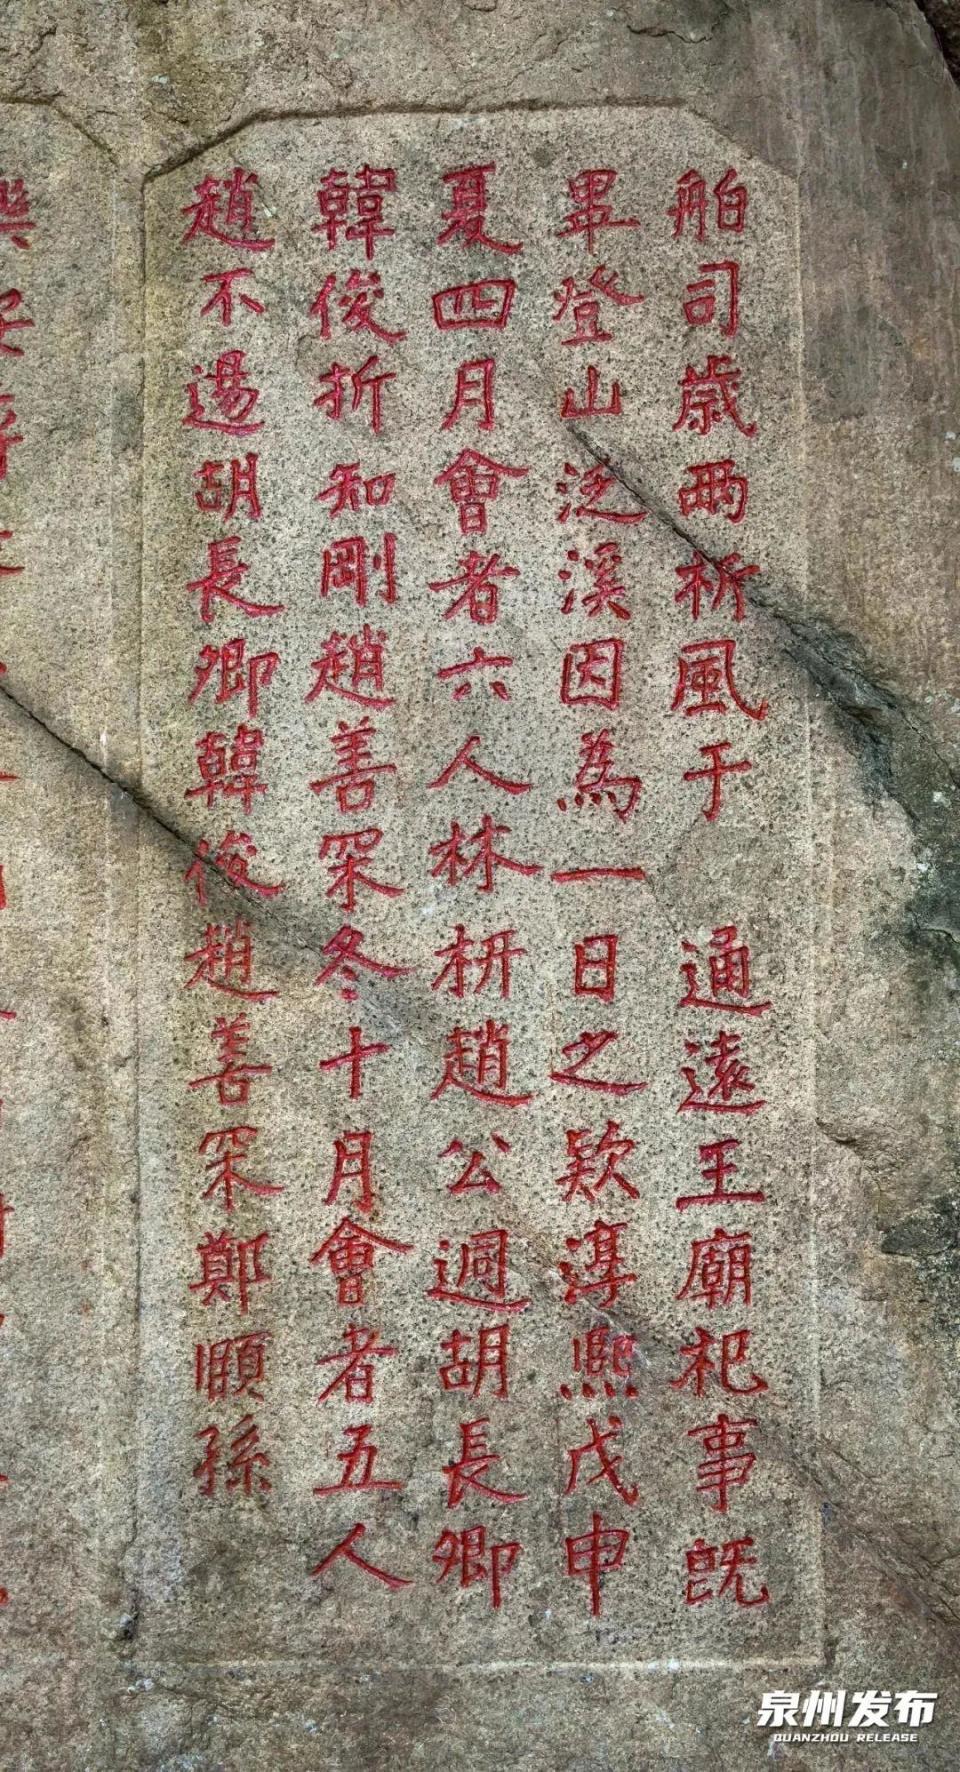 舶司歲兩祈風于 通遠王廟祀事既
畢登山泛溪因為一日之款淳熙戊申
夏四月會者六人林枅趙公迥胡長卿
韓俊折知剛趙善罙冬十月會者五人
趙不逷胡長卿韓俊趙善罙鄭頤孫
泉州发布
QUANZHOU RELEASE